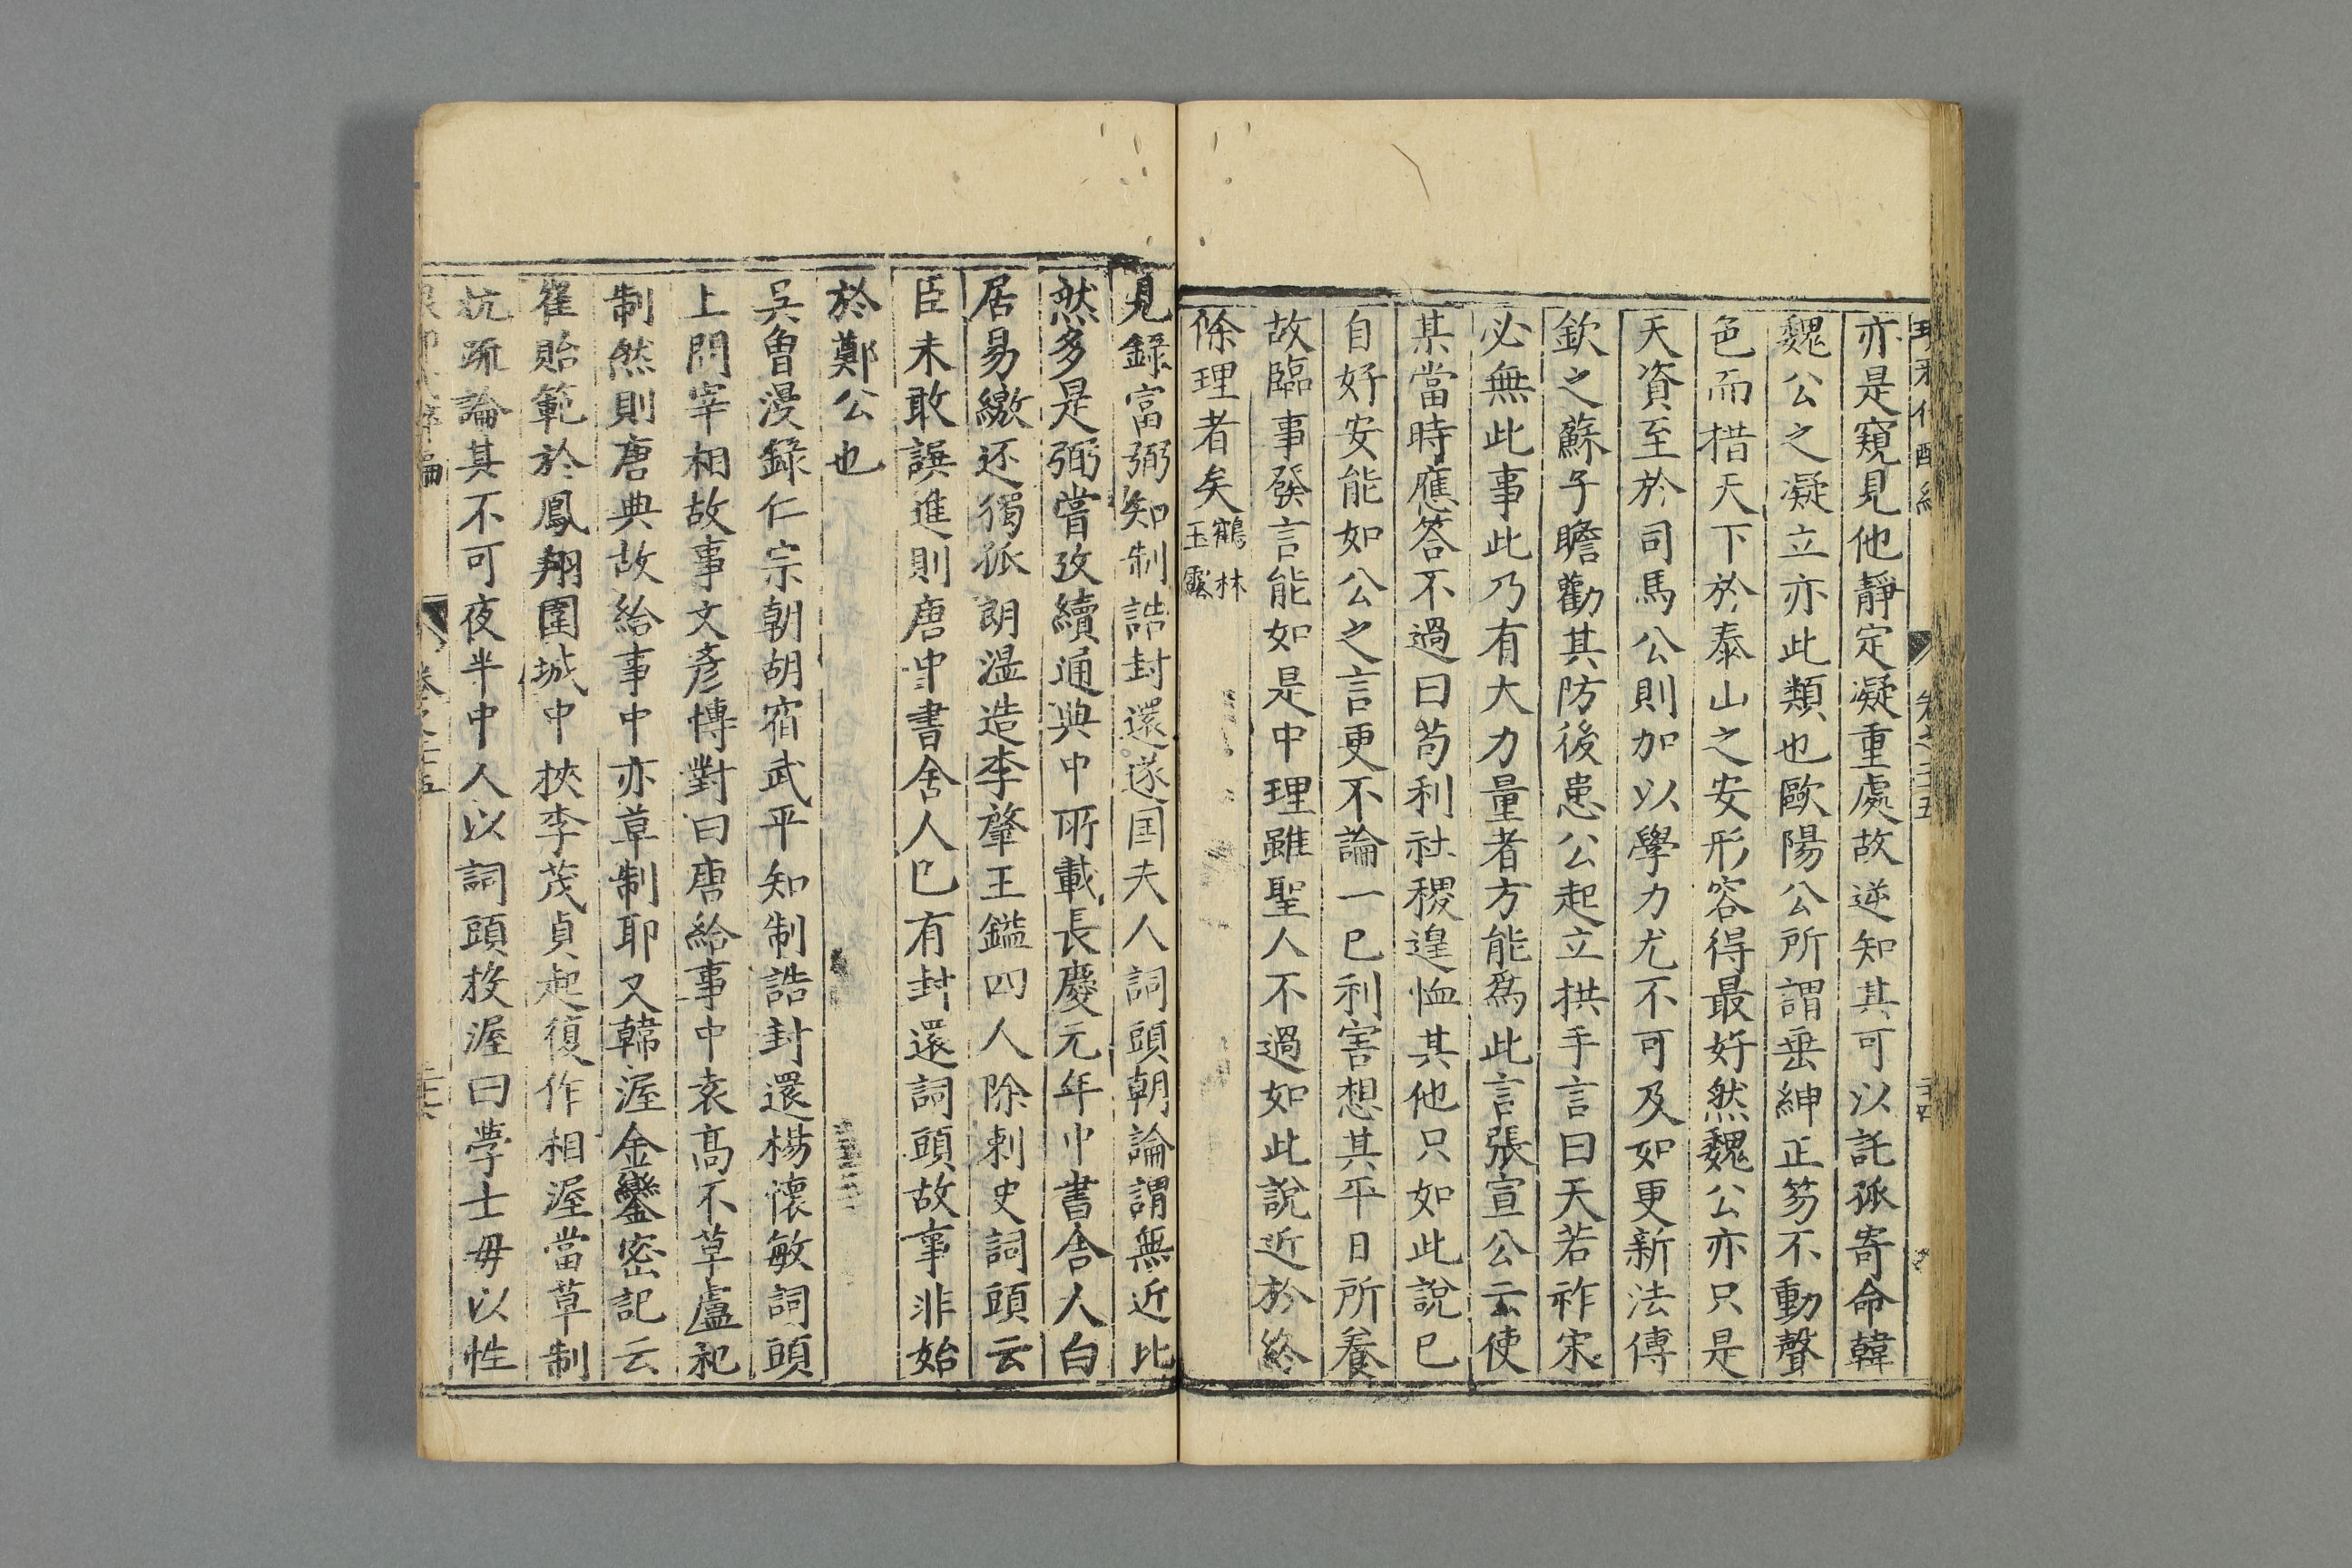 亦是窺見他靜定凝重處故逆知其可以託孤寄命韓
魏公之凝立亦此類也歐陽公所謂垂紳正笏不動聲
色而措天下於泰山之安形容得最好然魏公亦只是
天資至於司馬公則加以學力尤不可及如更新法傳
欽之蘇子瞻勸其防後患公起立拱手言曰天若祚宋
必無此事此乃有大力量者方能爲此言張宣公云使
某當時應答不過曰苟利社稷遑恤其他只如此說已
自好安能如公之言更不論一己利害想其平日所養
故臨事發言能如是中理雖聖人不過如此說近於終
條理者矣鶴林
玉露
見錄富弼知制誥封還遂国夫人詞頭朝論謂無近比
然多是弼嘗攷續通典中所載長慶元年中書舍人白
居易繳还獨孤朗溫造李肇王鎰四人除刺史詞頭云
臣未敢譔進則唐中書舍人已有封還詞頭故事非始
於鄭公也
吳曾漫錄仁宗朝胡宿武平知制誥封還楊懷敏詞頭
上問宰相故事文彥博對曰唐給事中袁高不草盧杞
制然則唐典故給事中亦草制耶又韓渥金鑾密記云
崔貽範於鳳翔圍城中挾李茂貞起復作相渥當草制
抗疏論其不可夜半中人以詞頭授渥曰學士毋以性
卷之二十五